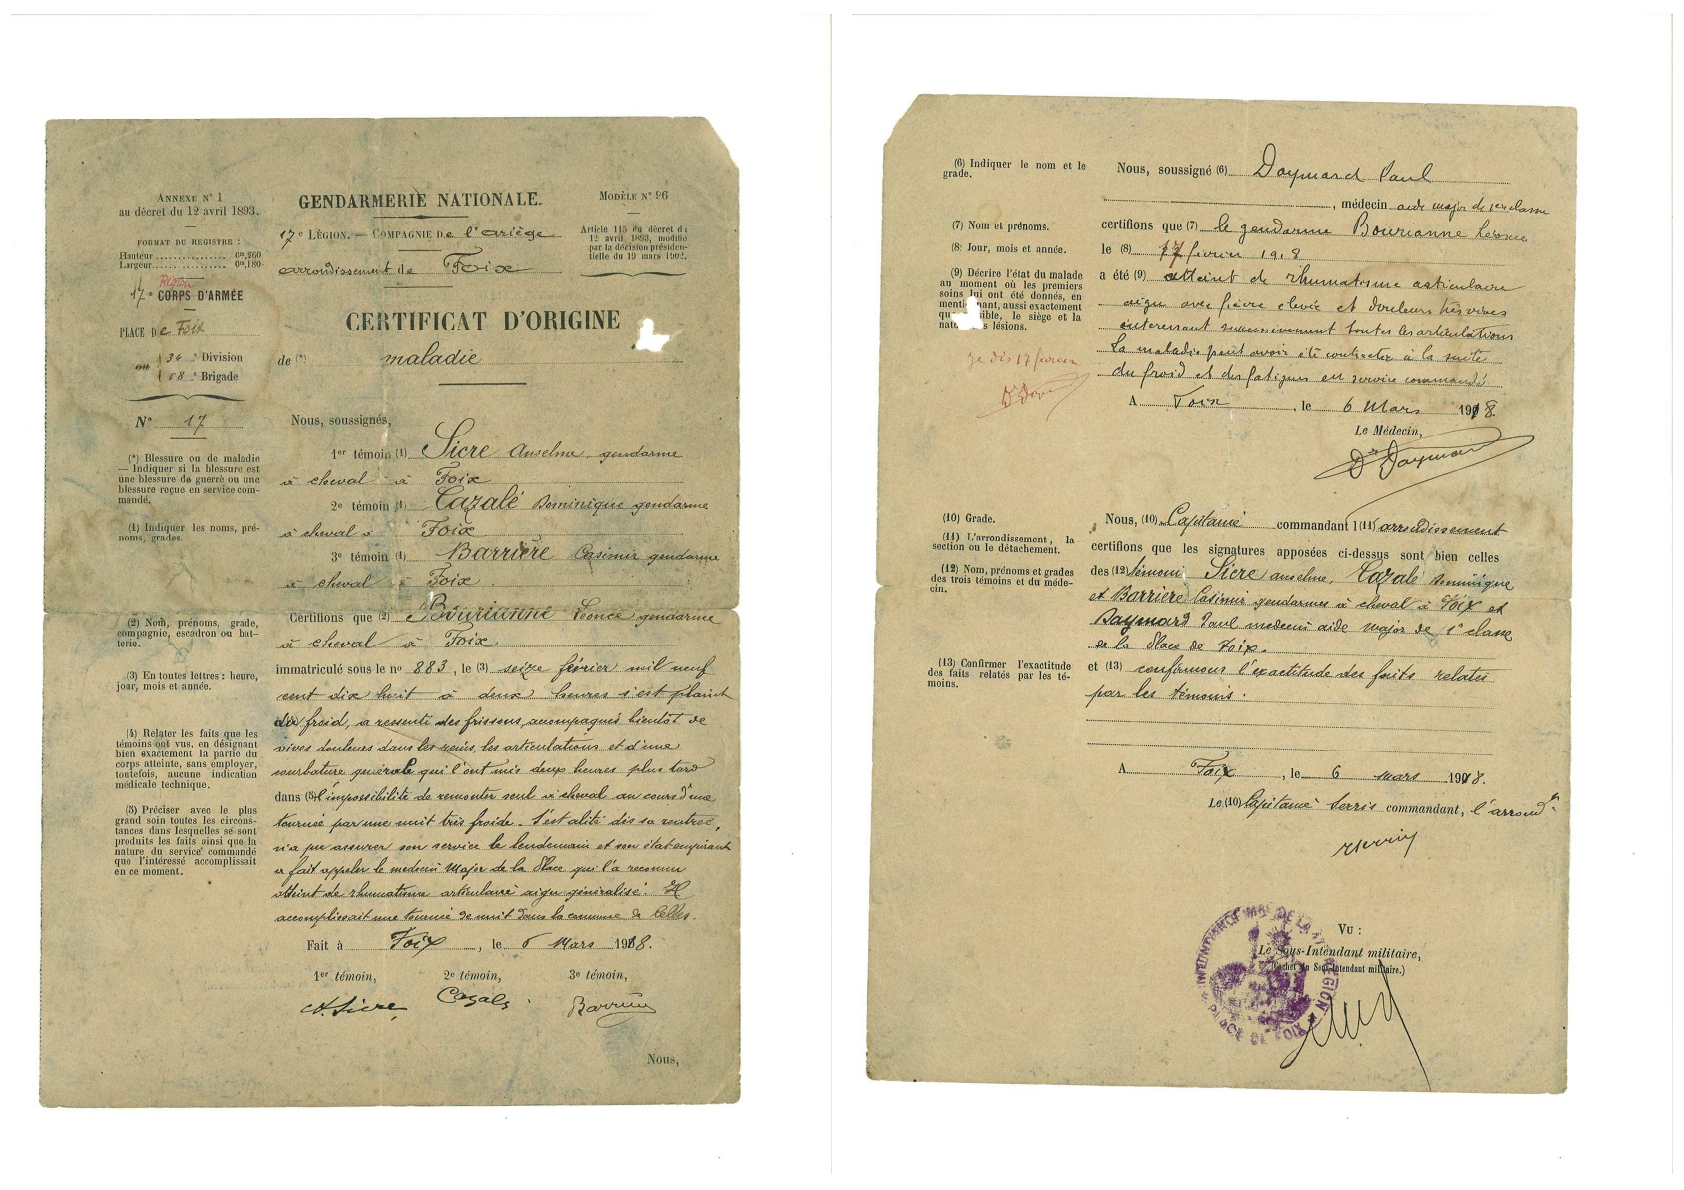 ANNEXE N° 1
au décret du 12 avril 1893.
FORMAT DU REGISTRE :
Hauteur ............... 0m,260
Largeur ............... 0m,180
Région
17e CORPS D'ARMÉE
PLACE De Foix
34e Division
ou
68e Brigade
N° 17
(*) Blessure ou de maladie
— Indiquer si la blessure est
une blessure de guerre ou une
blessure reçue en service com-
mandé.
(1) Indiquer les noms, pré-
noms, grades.
(2) Nom, prénoms, grade,
compagnie, escadron ou bat-
terie.
(3) En toutes lettres : heure,
jour, mois et année.
(4) Relater les faits que les
témoins ont vus, en désignant
bien exactement la partie du
corps atteinte, sans employer,
toutefois, aucune indication
médicale technique.
(5) Préciser avec le plus
grand soin toutes les circons-
tances dans lesquelles se sont
produits les faits ainsi que la
nature du service commandé
que l'intéressé accomplissait
en ce moment.
GENDARMERIE NATIONALE.
17e LÉGION. — COMPAGNIE De l'Ariège
arrondissement de Foix
MODÈLE N° 96
Article 115 du décret du
12 avril 1893, modifié
par la décision présiden-
tielle du 19 mars 1902.
CERTIFICAT D'ORIGINE
de (*) maladie
Nous, soussignés,
1er témoin (1) Sicre Anselme, gendarme
à cheval à Foix
2e témoin (1) Cazalé Dominique gendarme
à cheval à Foix
3e témoin (1) Barrière Casimir gendarme
à cheval à Foix.
Certifions que (2) Bourianne Léonce gendarme
à cheval à Foix
immatriculé sous le no 883, le (3) seize février mil neuf
cent dix huit à deux heures s'est plaint
du froid, a ressenti des frissons, accompagnés bientôt de
vives douleurs dans les reins, les articulations et d'une
courbature générale qui l'ont mis deux heures plus tard
dans (5) l'impossibilité de remonter seul à cheval au cours d'une
tournée par une nuit très froide. S'est alité dès sa rentrée,
n'a pu assurer son service le lendemain et son état empirant
a fait appeler le médecin Major de la Place qui l'a reconnu
atteint de rhumatisme articulaire aigu généralisé. Il
accomplissait une tournée de nuit dans la commune de Celles.
Fait à Foix, le 6 Mars 1918.
1er témoin, 2e témoin, 3e témoin,
A. Sicre, Cazalé Barrière
Nous,
(6) Indiquer le nom et le
grade.
(7) Nom et prénoms.
(8) Jour, mois et année.
(9) Décrire l'état du malade
au moment où les premiers
soins lui ont été donnés, en
mentionnant, aussi exactement
que possible, le siège et la
nature des lésions.
je dis 17 février
(10) Grade.
(11) L'arrondissement, la
section ou le détachement.
(12) Nom, prénoms et grades
des trois témoins et du méde-
cin.
(13) Confirmer l'exactitude
des faits relatés par les té-
moins.
Nous, soussigné (6) Daymard Paul
, médecin aide major de 1ere classe
certifions que (7) le gendarme Bourianne Léonce
le (8) 17 février 1918
a été (9) atteint de rhumatisme articulaire
aigu avec fièvre élevée et douleurs très vives
intéressant successivement toutes les articulations
La maladie peut avoir été contractée à la suite
du froid et des fatigues en service commandé
A Foix, le 6 Mars 1918.
Le Médecin,
Dr Daymard
Nous, (10) Capitaine commandant l (11) arrondissement
certifions que les signatures apposées ci-dessus sont bien celles
des (12) témoins Sicre Anselme, Cazalé Dominique
et Barrière Casimir gendarmes à cheval à Foix et
Daymard Paul médecin aide major de 1e classe
de la Place de Foix.
et (13) confirmons l'exactitude des faits relatés
par les témoins.
A Foix, le 6 mars 1918.
Le (10) Capitaine Serris commandant, l'arrondt
Serris
VU :
Le Sous-Intendant militaire,
(Cachet du Sous-Intendant militaire.)
SOUS-INTENDANCE MILre DE LA 17e RÉGION
PLACE DE FOIX